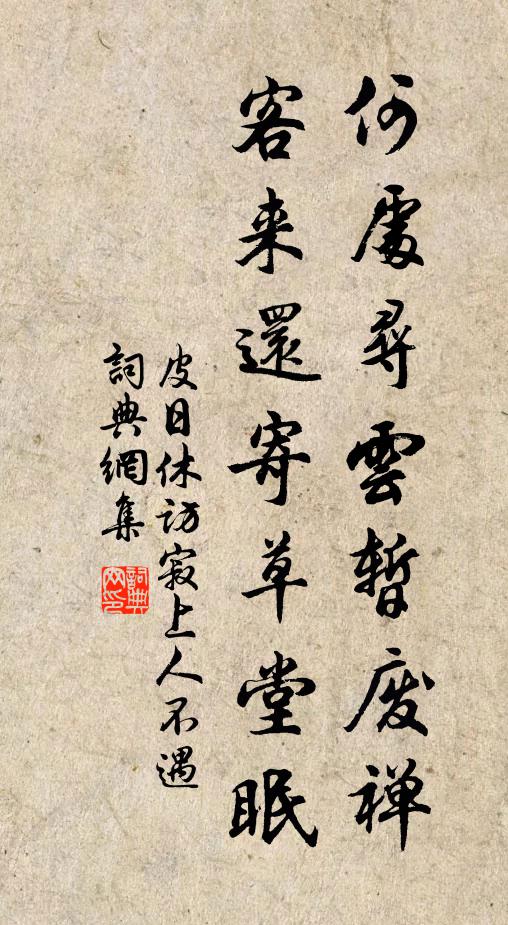 何處尋雲暫廢禪
客来還寄草堂眠
皮日休访寂上人不遇
詞典網集
詞典
网印